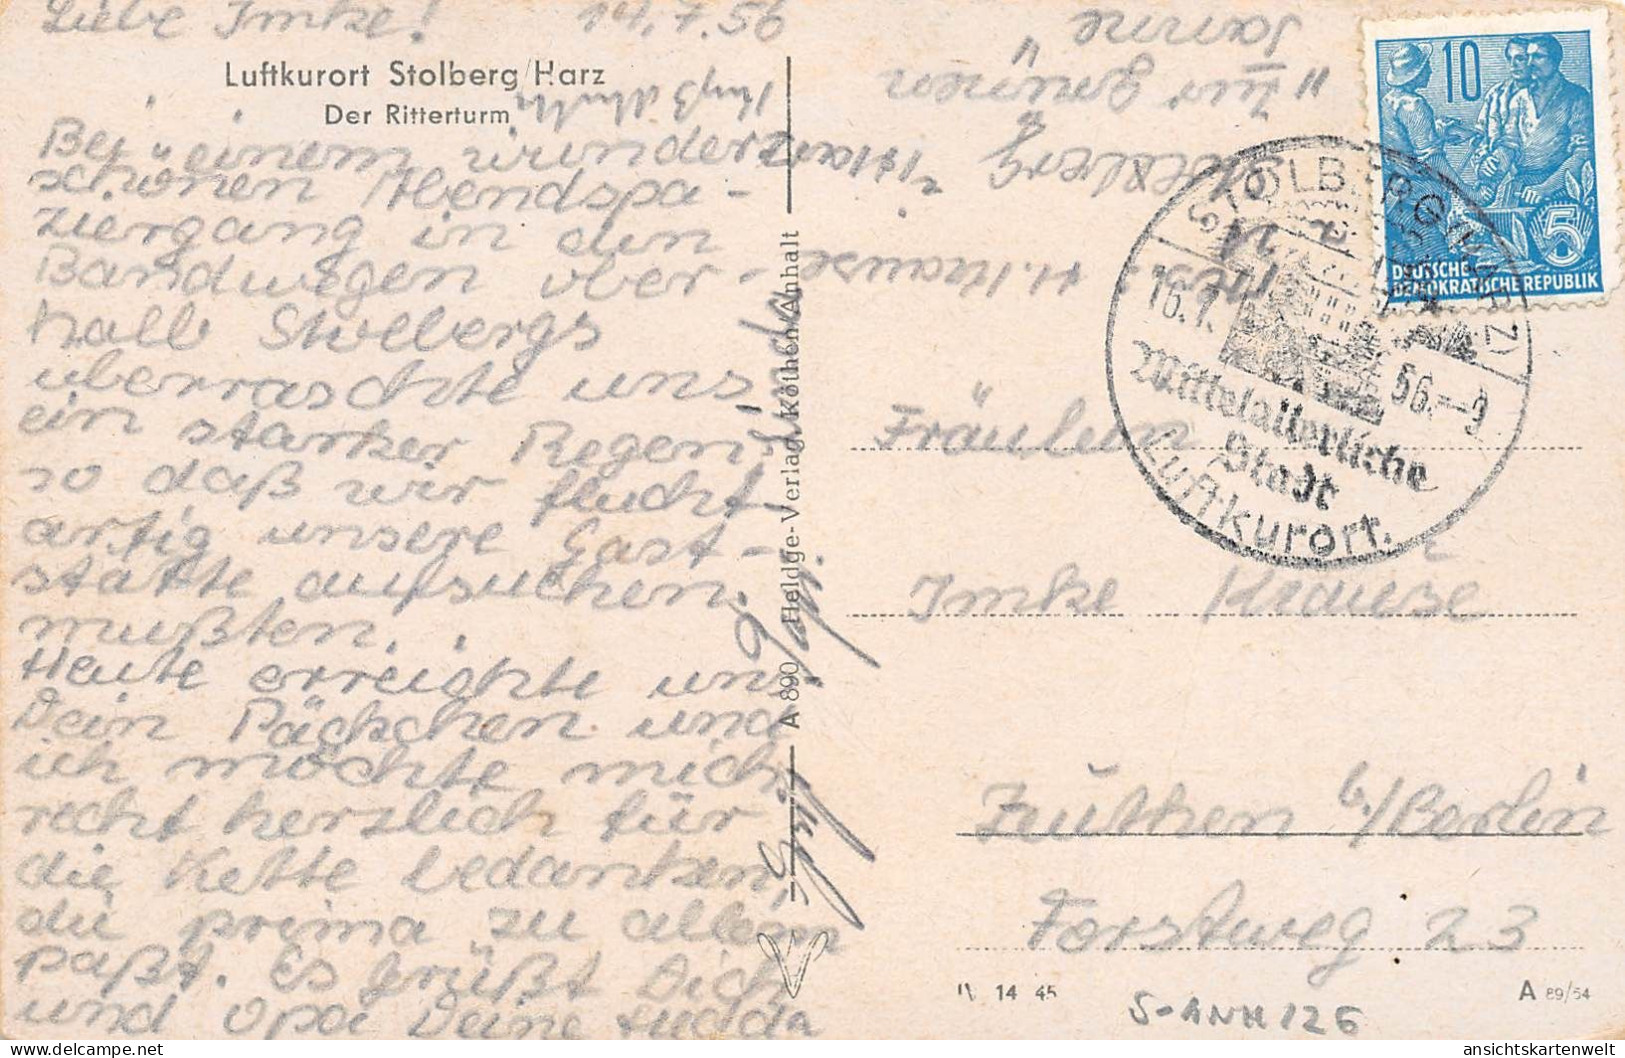 Liebe Imke! 14.7.56
Luftkurort Stolberg/Harz
Der Ritterturm
Bei einem wunder
schönen Abendspa-
ziergang in den
Bandwegen ober-
halb Stolbergs
überraschte uns
ein starker Regen,
so daß wir flucht-
artig unsere Gast-
stätte aufsuchen
mußten.
Heute erreichte uns
Dein Päckchen und
ich möchte mich
recht herzlich für
die Kette bedanken,
die prima zu allem
paßt. Es grüßt Dich
und Opa Deine
A 890 Heldge-Verlag, Köthen/Anhalt
Abs.: H. Krause
Stolberg Harz
"Zur grünen
Tanne"
10
5
DEUTSCHE
DEMOKRATISCHE REPUBLIK
STOLBERG (HARZ)
16.7. 56.-9
Mittelalterliche
Stadt
Luftkurort.
Fräulein
Imke Krause
Zeuthen b/Berlin
Forstweg 23
14 45
A 89/54
S-ANH 126
ansichtskartenwelt